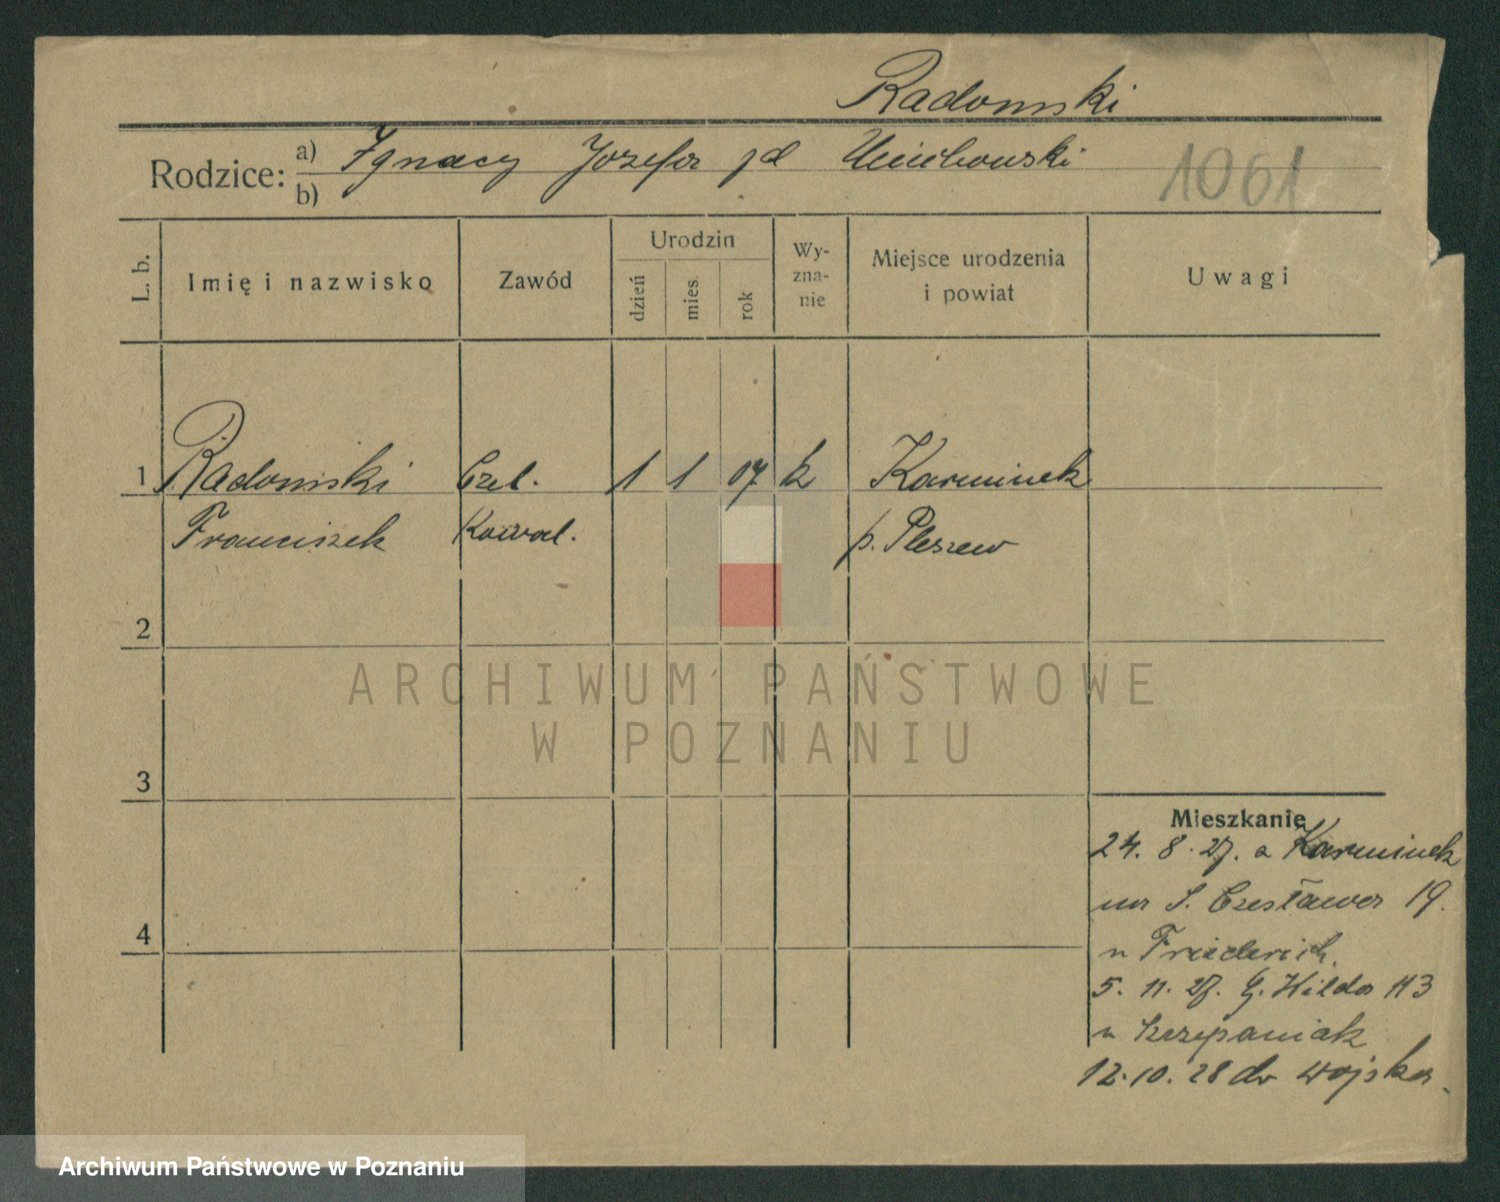 Radomski
Rodzice: a) Ignacy Jozefa zd
b)
1061
L. b. Imię i nazwisko Zawód Urodzin dzień mies. rok Wyznanie Miejsce urodzenia i powiat Uwagi
1 Radomski Czel. 1 1 07 k Karminek
Franciszek Kowal. p. Pleszew
2
3
4
Mieszkanie
24. 8. 27. z Karminek
na S. Czesława 19.
u Friederich.
5. 11. 27. G. Wilda 113
u Szczepaniak
12. 10. 28 do wojska.
ARCHIWUM PAŃSTWOWE
W POZNANIU
Archiwum Państwowe w Poznaniu